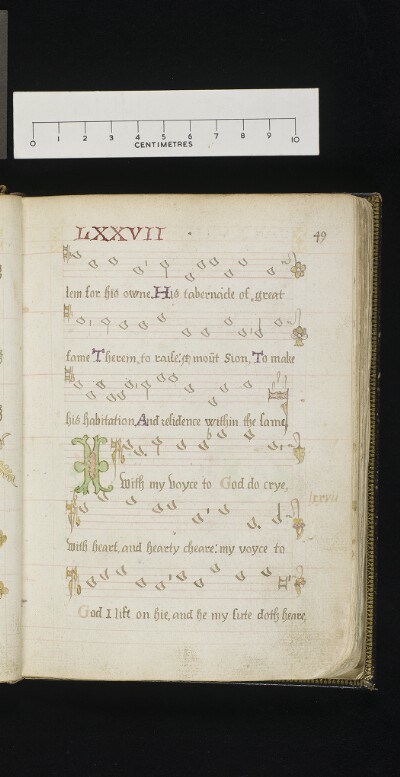 0 1 2 3 4 5 6 7 8 9 10
CENTIMETRES
LXXVII
49
lem for his owne, His tabernacle of, great
fame Therein, to raise: & moūt Sion, To make
his habitation And residence within the same,
I with my voyce to God do crye,
lxxvii
with heart, and hearty cheare: my voyce to
God I lift on hie, and he my sute doth heare